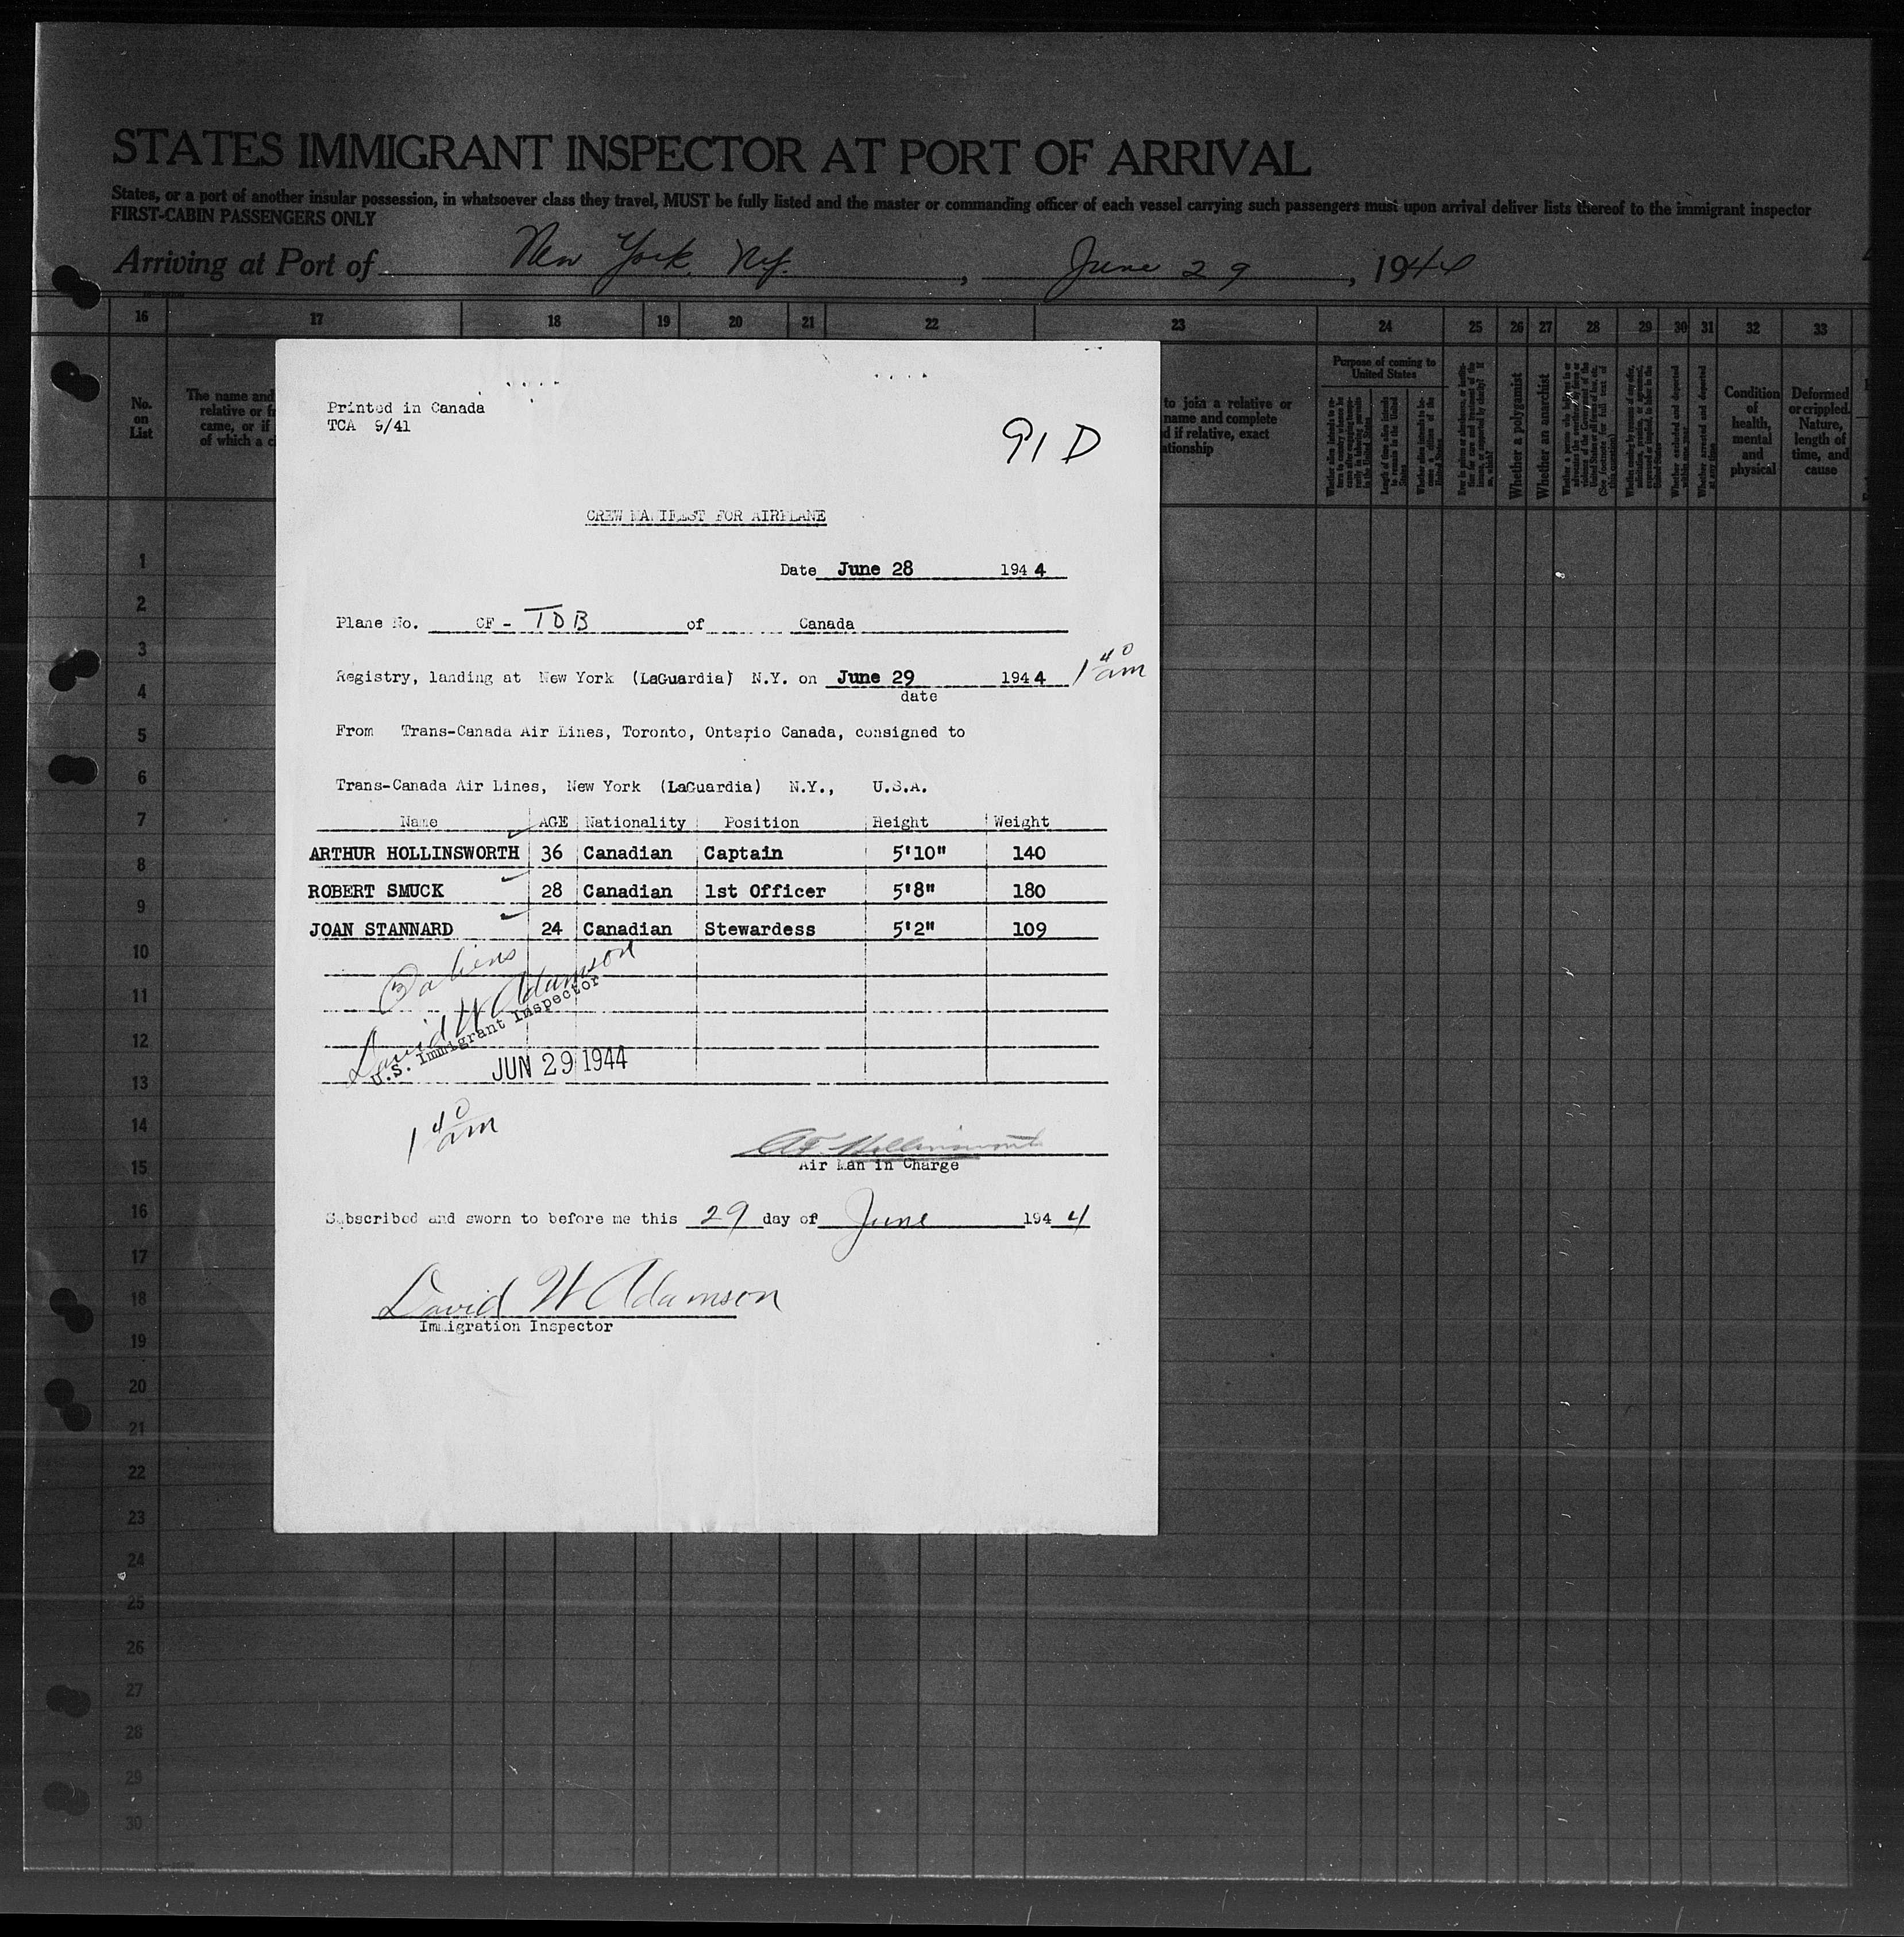 STATES IMMIGRANT INSPECTOR AT PORT OF ARRIVAL
States, or a port of another insular possession, in whatsoever class they travel, MUST be fully listed and the master or commanding officer of each vessel carrying such passengers must upon arrival deliver lists thereof to the immigrant inspector
FIRST-CABIN PASSENGERS ONLY
Arriving at Port of New York, N.Y. , June 29 , 1944
16 17 18 19 20 21 22 23 24 25 26 27 28 29 30 31 32 33
No.
on
List
The name and
relative or f
came, or if
of which a c
to join a relative or
name and complete
d if relative, exact
ationship
Purpose of coming to
United States
Whether a polygamist
Whether an anarchist
Whether excluded and deported
Whether arrested and deported
Condition
of
health,
mental
and
physical
Deformed
or crippled.
Nature,
length of
time, and
cause
Printed in Canada
TCA 9/41
91 D
CREW MANIFEST FOR AIRPLANE
Date June 28 1944
Plane No. CF - TDB of Canada
Registry, landing at New York (LaGuardia) N.Y. on June 29 1944 1 40 am
date
From Trans-Canada Air Lines, Toronto, Ontario Canada, consigned to
Trans-Canada Air Lines, New York (LaGuardia) N.Y., U.S.A.
Name AGE Nationality Position Height Weight
ARTHUR HOLLINSWORTH 36 Canadian Captain 5'10" 140
ROBERT SMUCK 28 Canadian 1st Officer 5'8" 180
JOAN STANNARD 24 Canadian Stewardess 5'2" 109
3 aliens
David W Adamson
U.S. Immigrant Inspector
JUN 29 1944
1 40 am
Air Man in Charge
Subscribed and sworn to before me this 29 day of June 1944
David W Adamson
Immigration Inspector
1
2
3
4
5
6
7
8
9
10
11
12
13
14
15
16
17
18
19
20
21
22
23
24
25
26
27
28
29
30